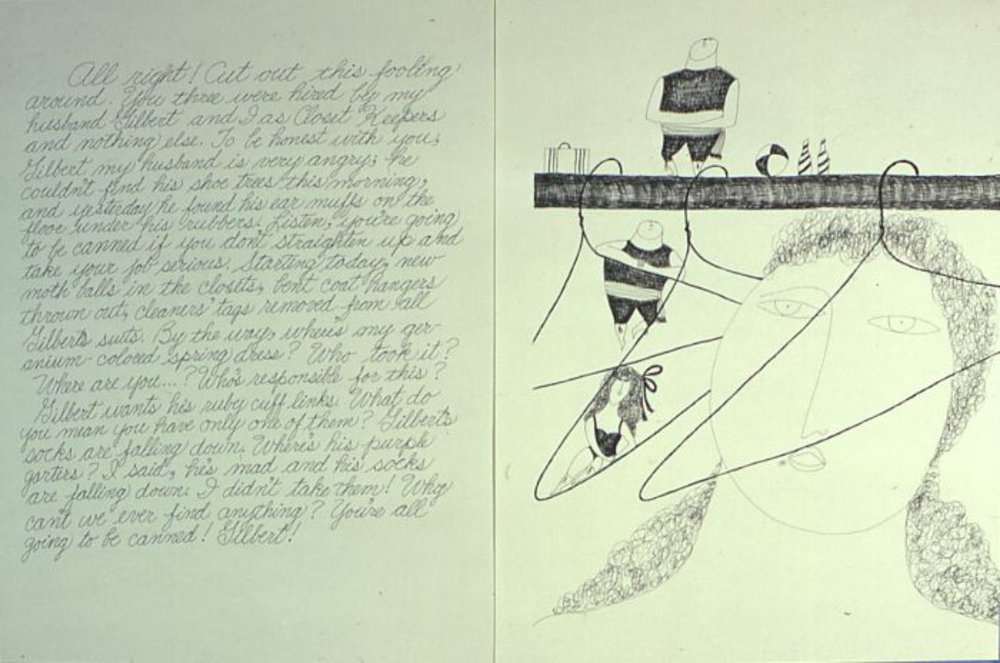 All right! Cut out this fooling
around. You three were hired by my
husband Gilbert and I as Closet Keepers
and nothing else. To be honest with you,
Gilbert my husband is very angry; he
couldn't find his shoe trees this morning,
and yesterday he found his ear muffs on the
floor under his rubbers. Listen, you're going
to be canned if you don't straighten up and
take your job serious. Starting today, new
moth balls in the closets, bent coat hangers
thrown out, cleaners' tags removed from all
Gilberts suits. By the way, where's my ger-
anium-colored spring dress? Who took it?
Where are you...? Who's responsible for this?
Gilbert wants his ruby cuff links. What do
you mean you have only one of them? Gilbert's
socks are falling down. Where's his purple
garters? I said, he's mad and his socks
are falling down. I didn't take them! Why
can't we ever find anything? You're all
going to be canned! Gilbert!